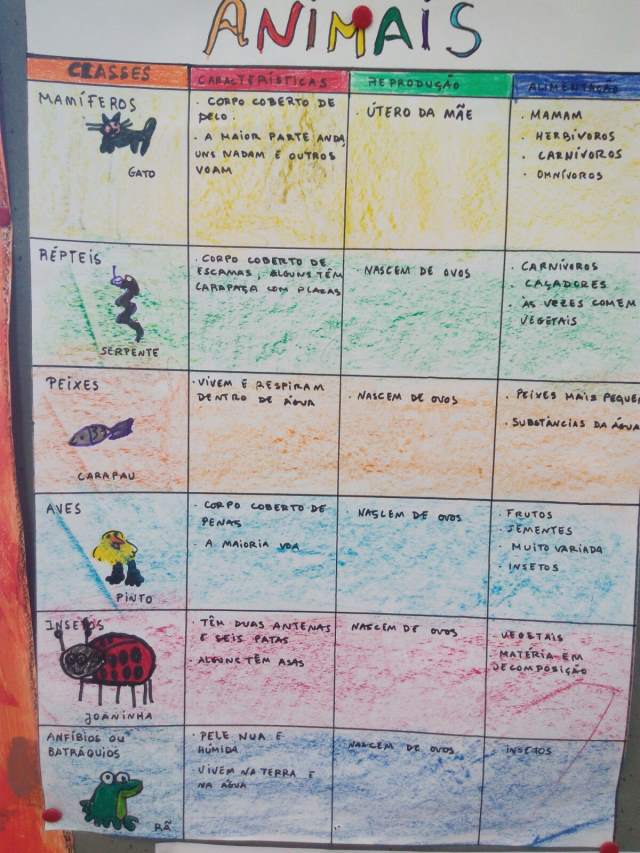 ANIMAIS
CLASSES
CARACTERÍSTICAS
REPRODUÇÃO
ALIMENTAÇÃO
MAMÍFEROS
GATO
· CORPO COBERTO DE
PELO.
· A MAIOR PARTE ANDA,
UNS NADAM E OUTROS
VOAM
· ÚTERO DA MÃE
· MAMAM
· HERBÍVOROS
· CARNÍVOROS
· OMNÍVOROS
RÉPTEIS
SERPENTE
· CORPO COBERTO DE
ESCAMAS, ALGUNS TÊM
CARAPAÇA COM PLACAS
· NASCEM DE OVOS
· CARNÍVOROS
· CAÇADORES
· ÀS VEZES COMEM
VEGETAIS
PEIXES
CARAPAU
· VIVEM E RESPIRAM
DENTRO DE ÁGUA
· NASCEM DE OVOS
· PEIXES MAIS PEQUE
· SUBSTÂNCIAS DA ÁGUA
AVES
PINTO
· CORPO COBERTO DE
PENAS
· A MAIORIA VOA
· NASCEM DE OVOS
· FRUTOS
· SEMENTES
· MUITO VARIADA
· INSETOS
INSETOS
JOANINHA
· TÊM DUAS ANTENAS
E SEIS PATAS
· ALGUNS TÊM ASAS
NASCEM DE OVOS
· VEGETAIS
· MATÉRIA EM
DECOMPOSIÇÃO
ANFÍBIOS OU
BATRÁQUIOS
RÃ
· PELE NUA E
HÚMIDA
· VIVEM NA TERRA E
NA ÁGUA
NASCEM DE OVOS
INSETOS